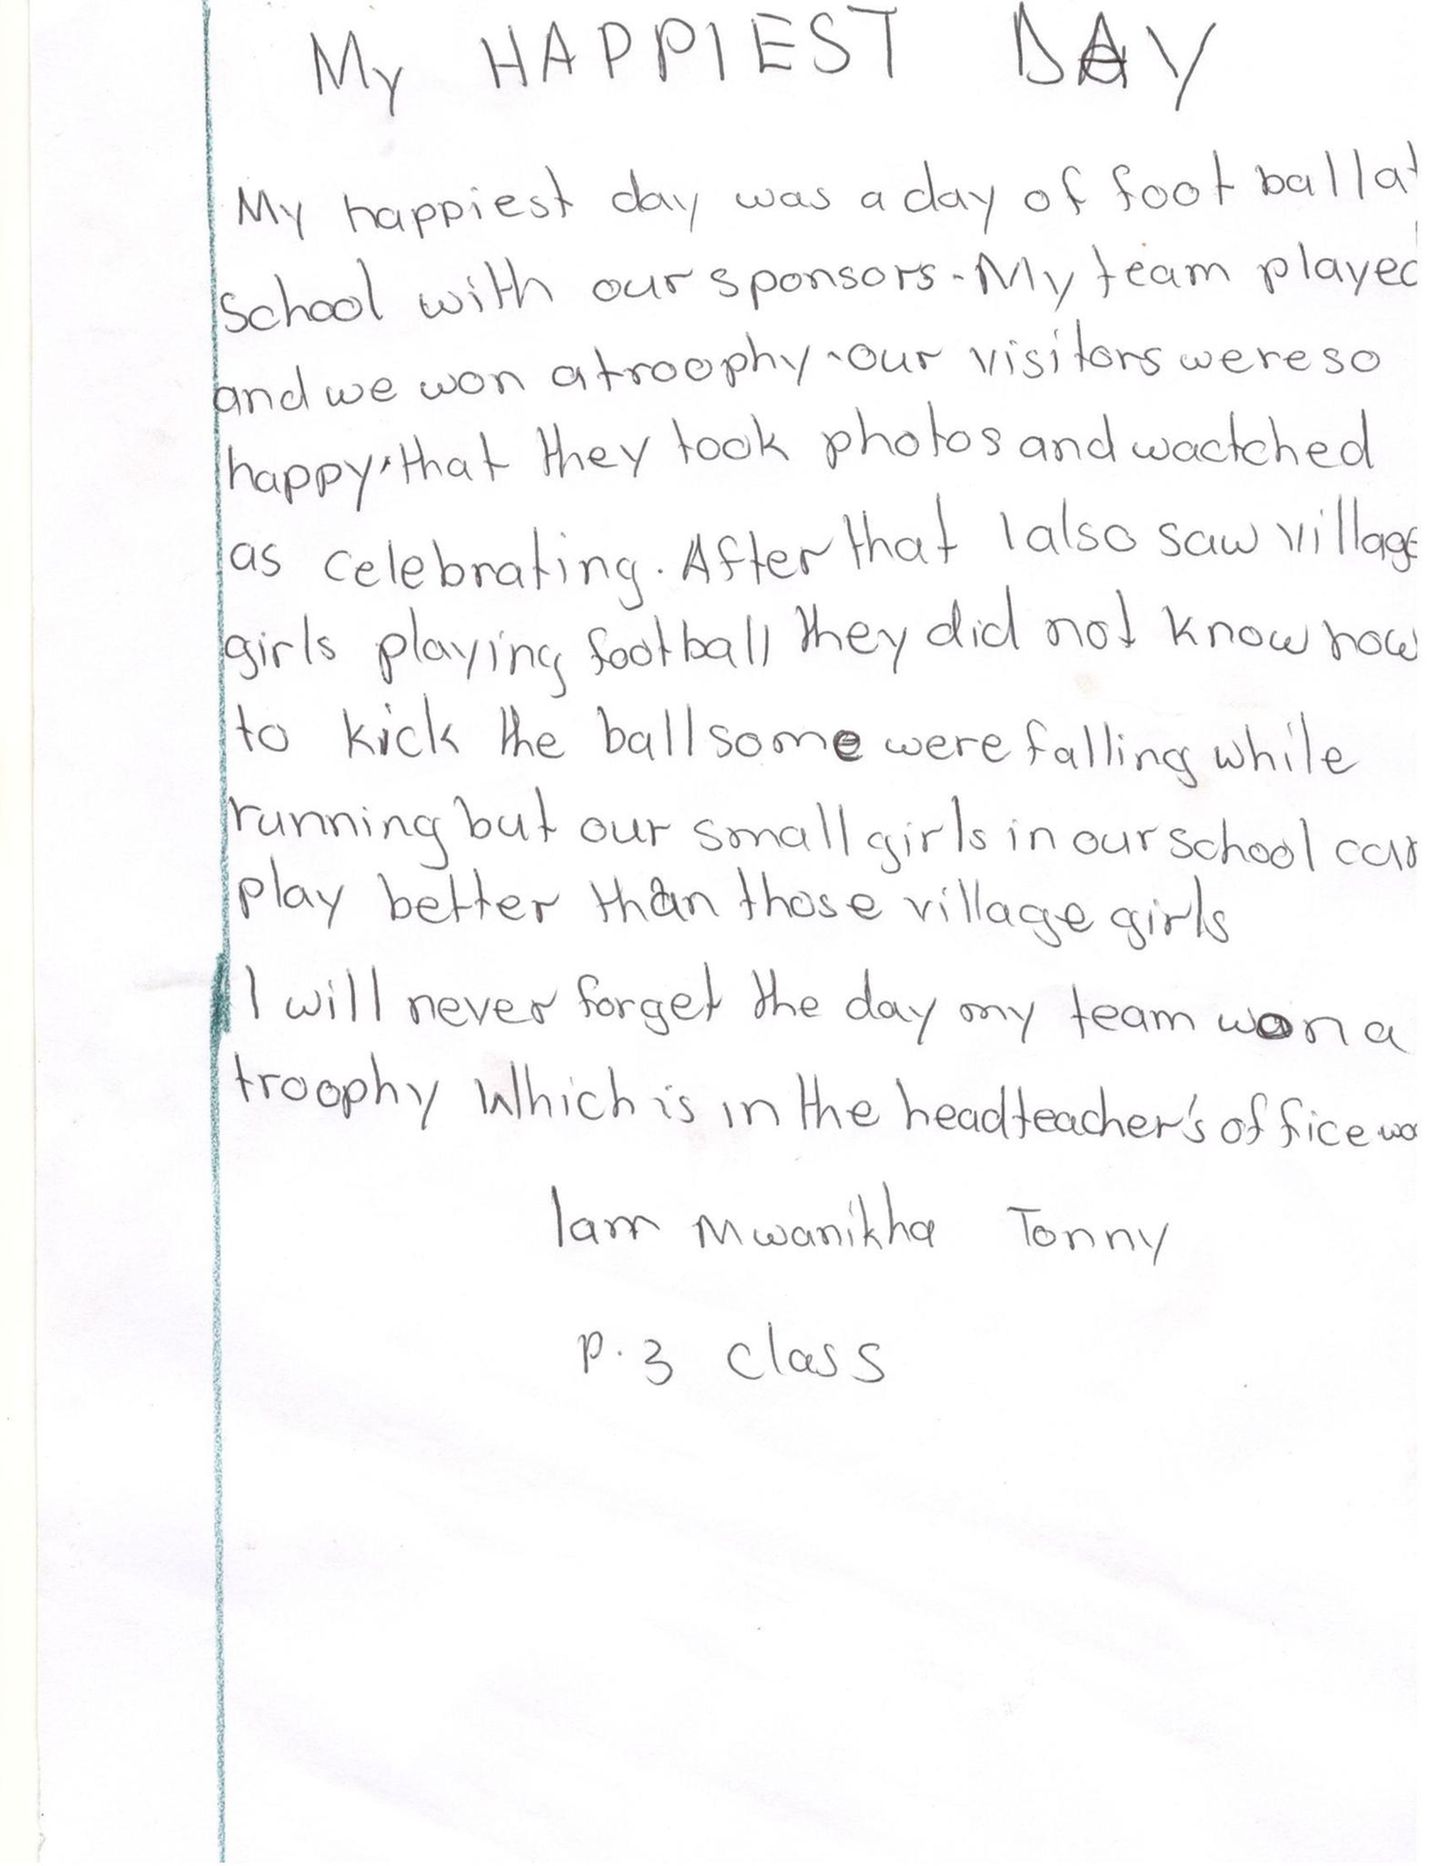 My HAPPIEST DAY
My happiest day was a day of foot ball at
school with our sponsors. My team played
and we won a troophy. our visitors were so
happy, that they took photos and wactched
as celebrating. After that I also saw village
girls playing football, they did not know how
to kick the ball some were falling while
running but our small girls in our school can
play better than those village girls
I will never forget the day my team won a
troophy which is in the headteacher's office
Iam Mwanikha Tonny
P.3 class